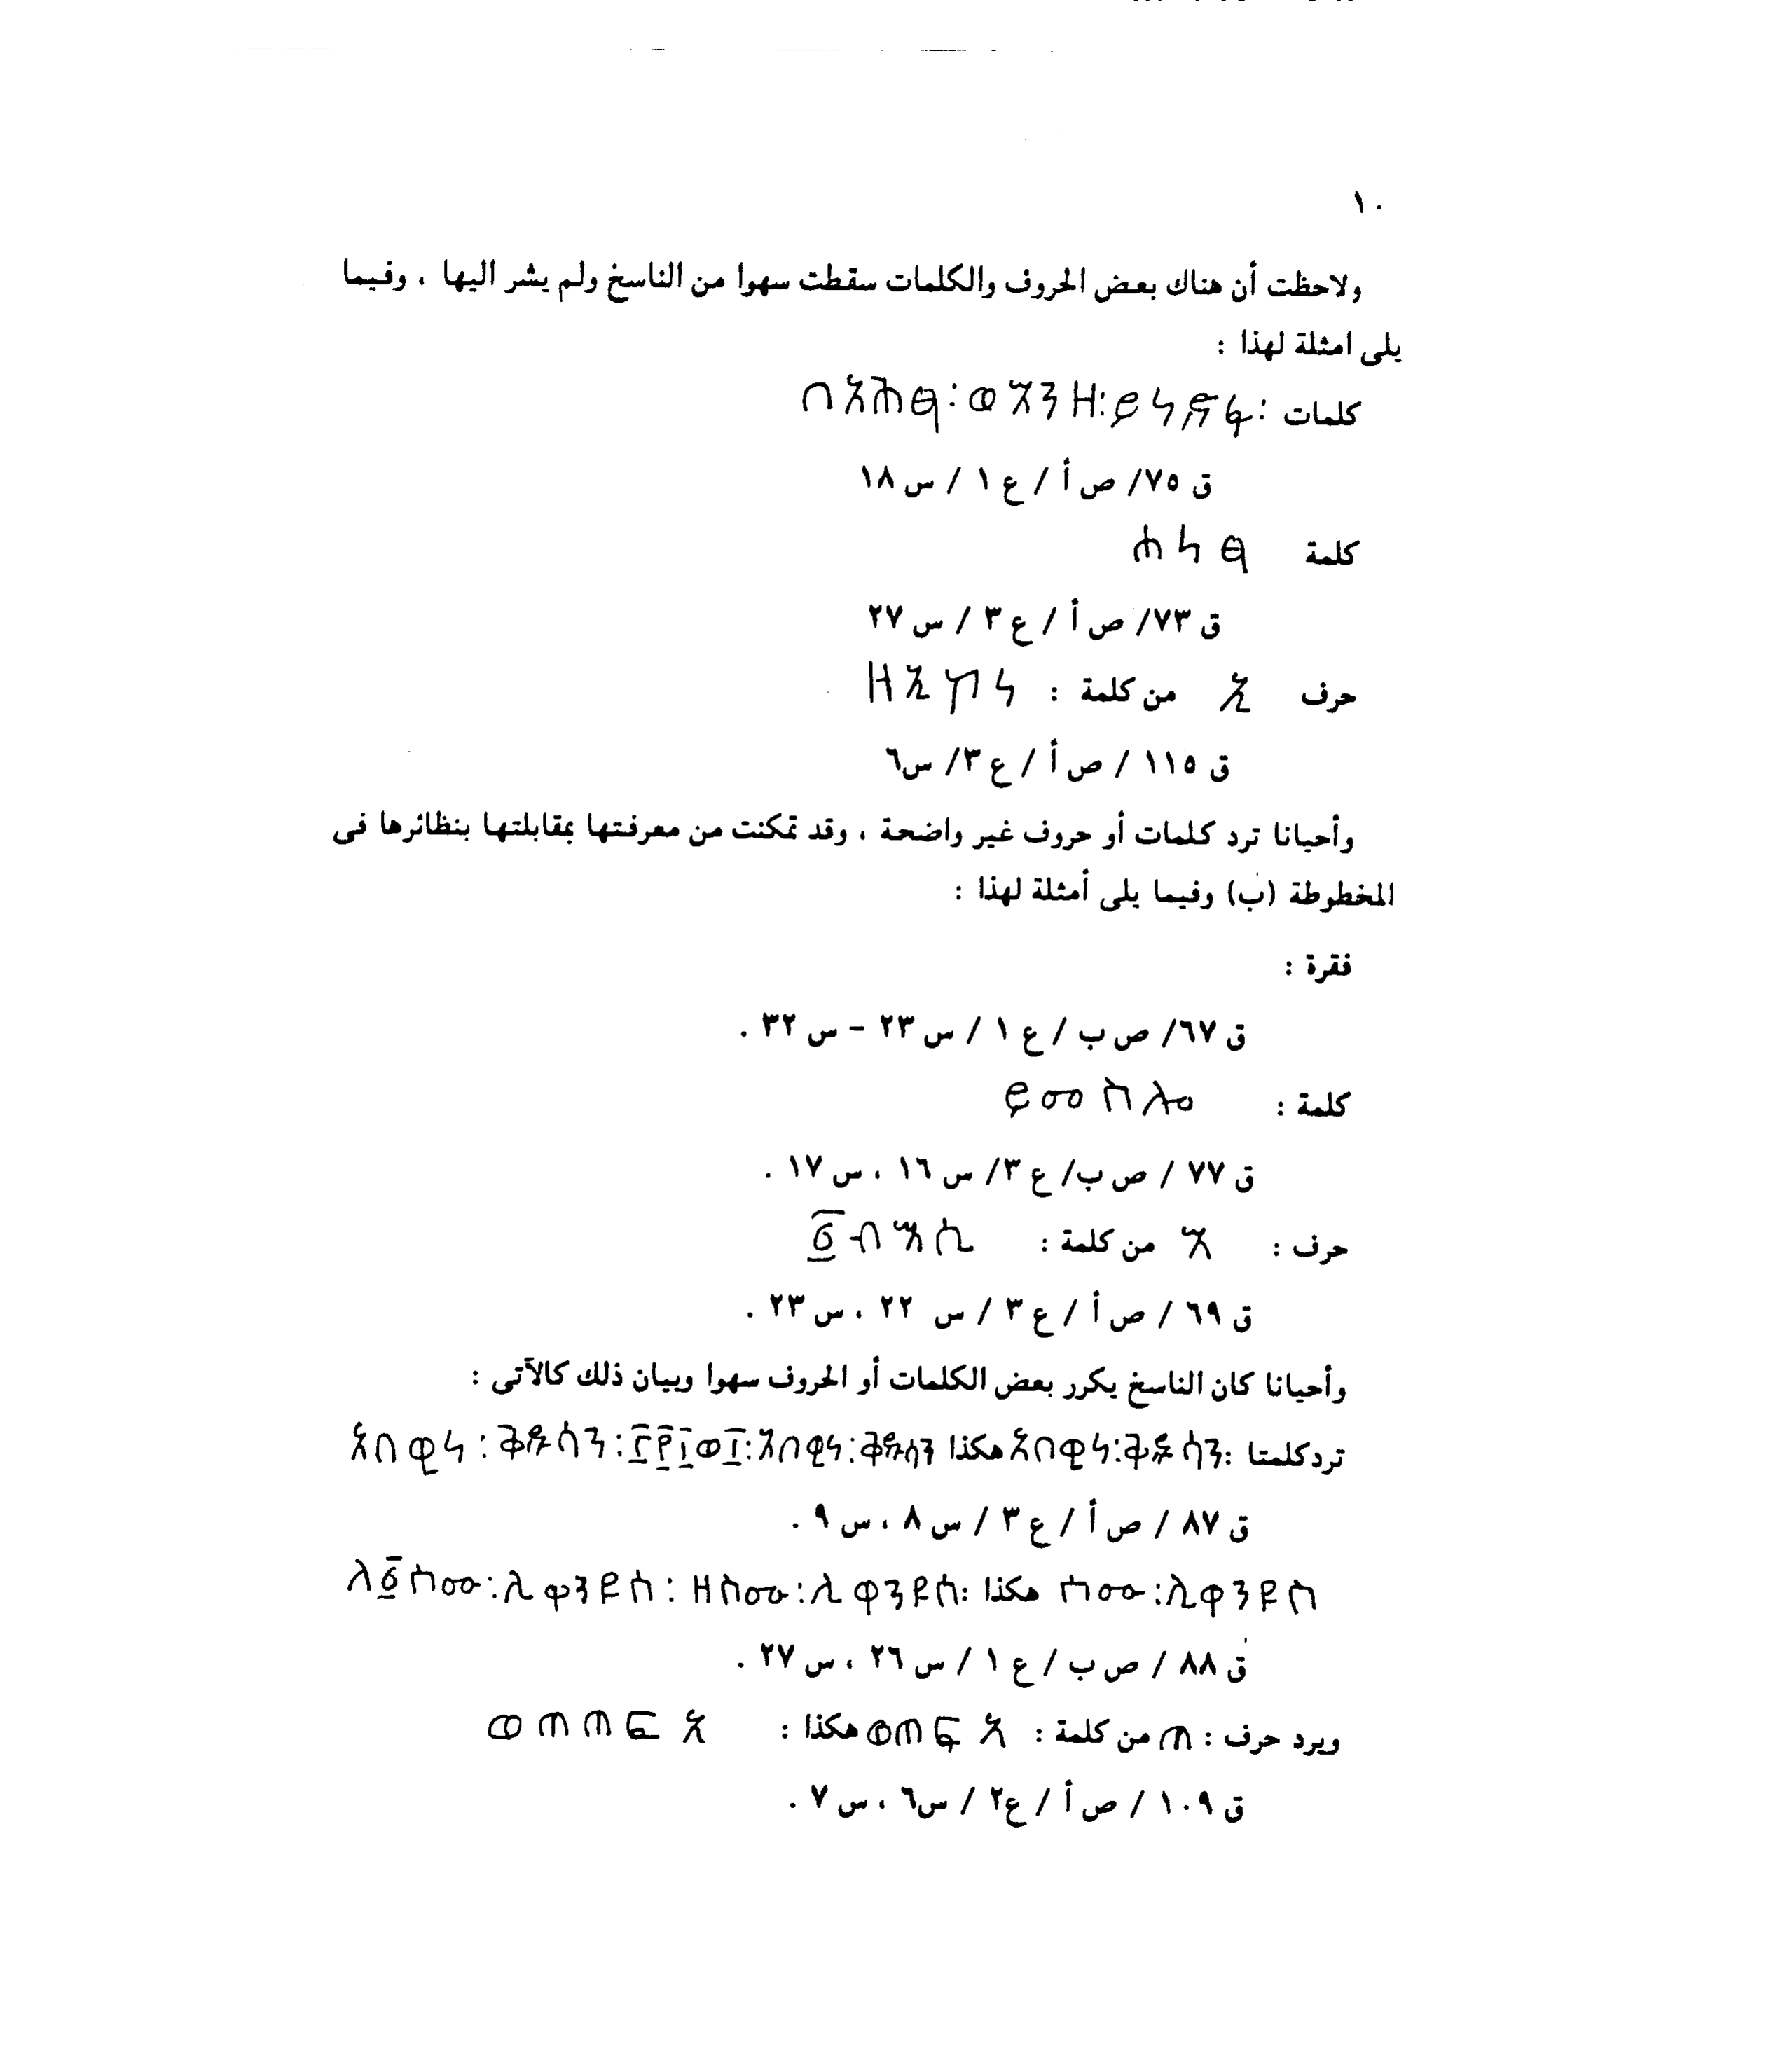 ١٠
ولاحظت أن هناك بعض الحروف والكلمات سقطت سهوا من الناسخ ولم يشر اليها ، وفيما
يلى امثلة لهذا :
كلمات :
ق ٧٥/ ص أ / ع ١ / س ١٨
كلمة
ق ٧٣/ ص أ / ع ٣ / س ٢٧
حرف ኢ من كلمة : ዘኢሦነ
ق ١١٥ / ص أ / ع ٣/ س٦
وأحيانا ترد كلمات أو حروف غير واضحة ، وقد تمكنت من معرفتها بمقابلتها بنظائرها فى
المخطوطة (ب) وفيما يلى أمثلة لهذا :
فقرة :
ق ٦٧/ ص ب / ع ١ / س ٢٣ – س ٣٢ .
كلمة : ይመስሎ
ق ٧٧ / ص ب/ ع ٣/ س ١٦ ، س ١٧ .
حرف : من كلمة : ፩ብኧሲ
ق ٦٩ / ص أ / ع ٣ / س ٢٢ ، س ٢٣ .
وأحيانا كان الناسخ يكرر بعض الكلمات أو الحروف سهوا وبيان ذلك كالآتى :
ترد كلمتا : አበዊነ:ቅዱሳን هكذا አበዊነ:ቅዱሳን:፫፻፲ወ፰:አበዊነ:ቅዱሳን
ق ٨٧ / ص أ / ع ٣ / س ٨ ، س ٩ .
ስሙ:ሊቀንዮስ هكذا : ለ፩ስሙ:ሊቀንዮስ:ዘስሙ:ሊቀንዮስ
ق ٨٨ / ص ب / ع ١ / س ٢٦ ، س ٢٧ .
ويرد حرف : ጠ من كلمة : ወጠፍአ هكذا : ወጠጠፍአ
ق ١٠٩ / ص أ / ع٢ / س٦ ، س ٧ .